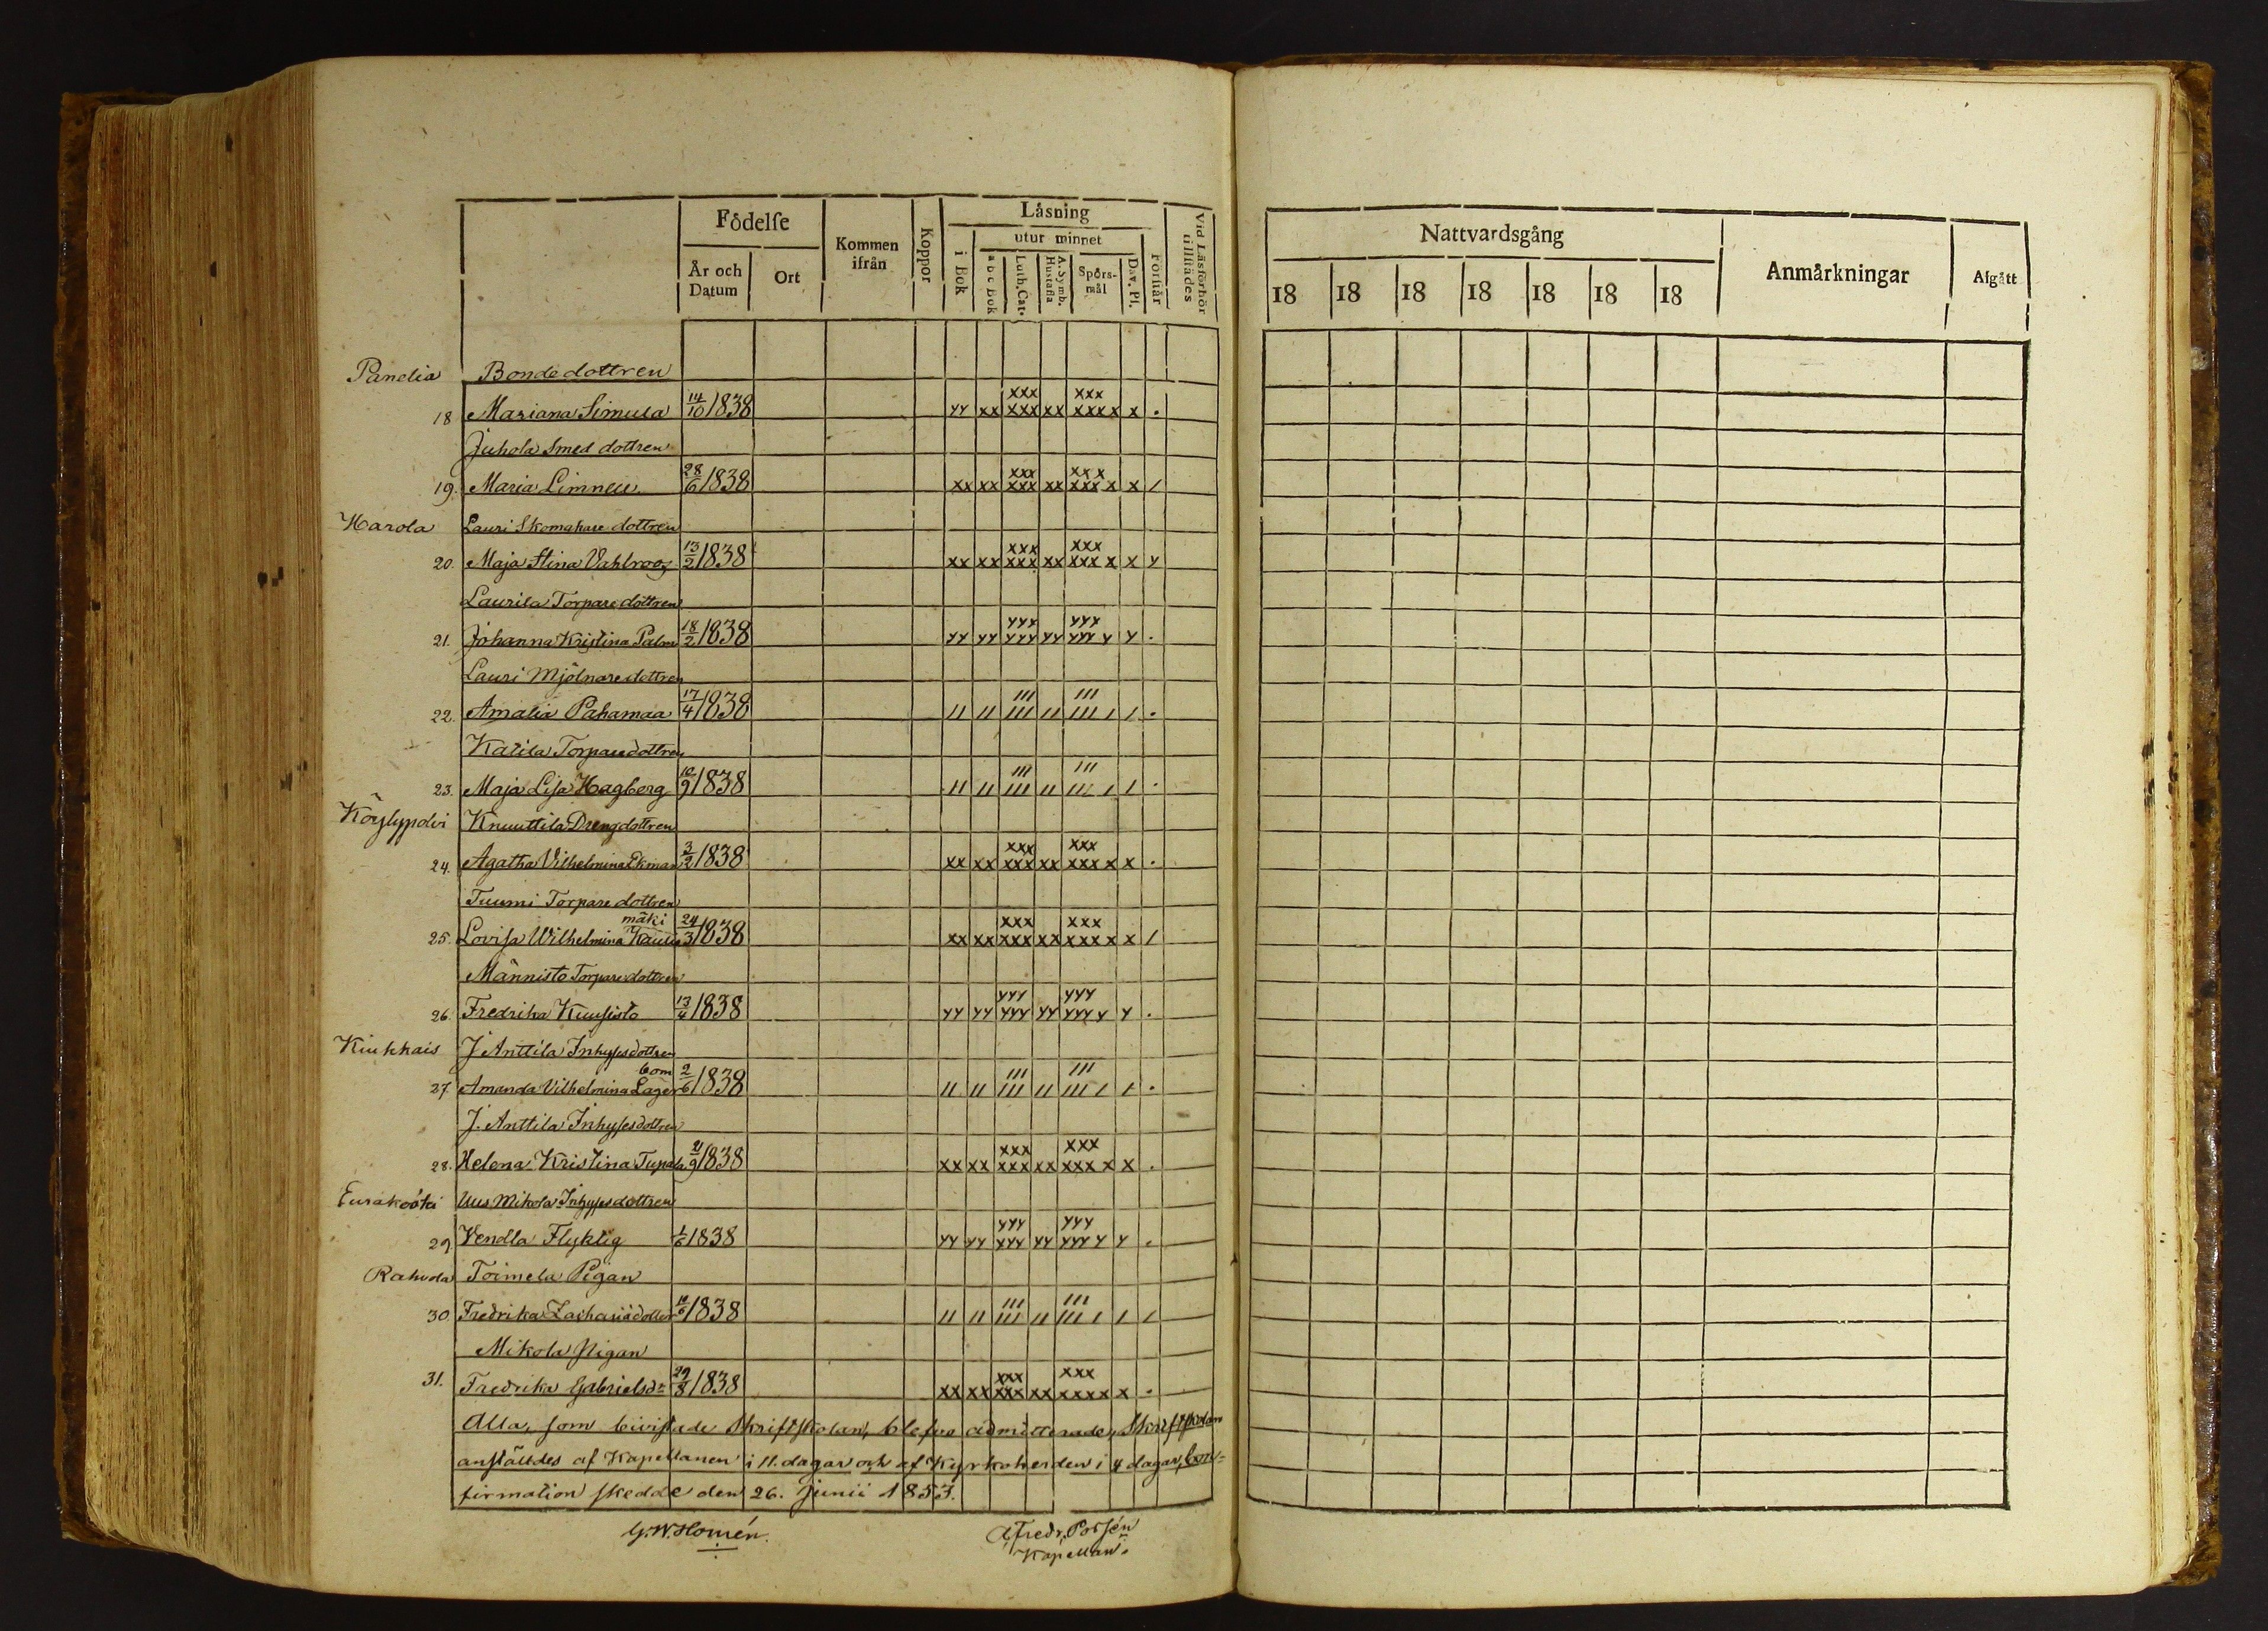 Födelse
Kommen ifrån
Koppor
Läsning
Vid Läsförhör tillstädes
År och Datum
Ort
i Bok
utur minnet
a b c Bok
Luth. Cat.
A. Symb. Hustafla
Spörsmål
Dav. Ps.
Förstår
Nattvardsgång
Anmärkningar
Afgått
18 18 18 18 18 18 18
Panelia Bondedottren
18 Mariana Simula 14/10 1838 yy xx xxx xxx xx xxx xxx x x .
Juhola Smed dottren
19. Maria Limnell 28/6 1838 xx xx xxx xxx xx xxx xxx x x /
Harola Lauri Skomakare dottren
20. Maja Stina Vahlroos 13/2 1838 xx xx xxx xxx xx xxx xxx x x y
Laurila Torpare dottren
21. Johanna Kristina Palm 18/2 1838 yy yy yyy yyy yy yyy yyy y y .
Lauri Mjölnare dottren
22. Amalia Pahamaa 17/4 1838 // // /// /// // /// /// / / .
Katila Torparedottren
23. Maja Lisa Hagberg 10/9 1838 // // /// /// // /// /// / / .
Köylypolvi Knuuttila Drengdottren
24. Agatha Vilhelmina Ekman 3/2 1838 xx xx xxx xxx xx xxx xxx x x .
Tuumi Torpare dottren
25. Lovisa Wilhelmina mäki 24/3 1838 xx xx xxx xxx xx xxx xxx x x /
Männistö Torparedottren
26. Fredrika Kuusisto 13/4 1838 yy yy yyy yyy yy yyy yyy y y .
Kiukkais J Anttila Inhysesdottren
27. Amanda Vilhelmina Lagerbom 2/6 1838 // // /// /// // /// /// / / .
J. Anttila Inhysesdottren
28. Helena Kristina Tupala 21/9 1838 xx xx xxx xxx xx xxx xxx x x .
Eurakoski Uus Mikola Inhysesdottren
29. Vendla Flyktig 1/6 1838 yy yy yyy yyy yy yyy yyy y y .
Rahvola Toimela Pigan
30. Fredrika Zachariædotter 1838 // // /// /// // /// /// / / /
Mikola Pigan
31. Fredrika Gabrielsdr 29/8 1838 xx xx xxx xxx xx xxx xxx x x .
Alla, som bivistade Skriftskolan, blefvo admitterade, Skriftskolan
anställdes af Kapellanen i 11. dagar och af Kyrkoherden i 4 dagar, Con=
firmation skedde den 26. Junii 1853.
G.W. Homén.
A Fredr. Polsén
Kapellan.